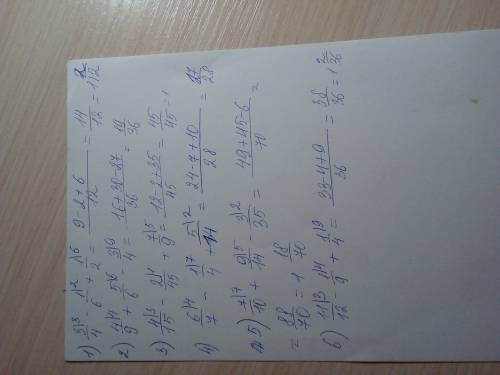 1) 3\3/4 - 1\2/6 + 1\6/2 = 9-2+6/12 = 14/12 = 1 2/12
2) 4\4/9 + 5\6/6 - 3\9/4 = 16+30-27/36 = 19/36
3) 4\3/15 - 2\1/45 + 7\5/9 = 12-2+35/45 = 45/45 = 1
4) 6\4/7 - 1\7/4 + 5\2/14 = 24-7+10/28 = 27/28
5) 7\7/10 + 9\5/14 - 3\2/35 = 49+45-6/70 =
= 88/70 = 1 18/70
6) 11\3/12 - 1\4/9 + 1\9/4 = 33-4+9/36 = 38/36 = 1 2/36